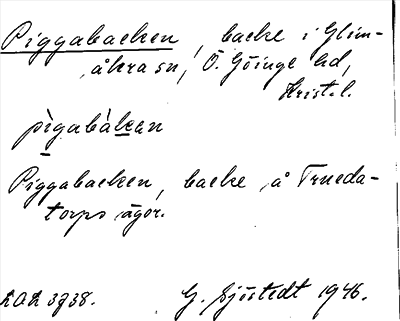 Piggabacken, backe i Glim-
åkra sn, Ö. Göinge hd,
Krist. l.
pìgabàkan
Piggabacken, backe å Trueda-
torps ägor.
LOL 3738. G. Sjöstedt 1946.